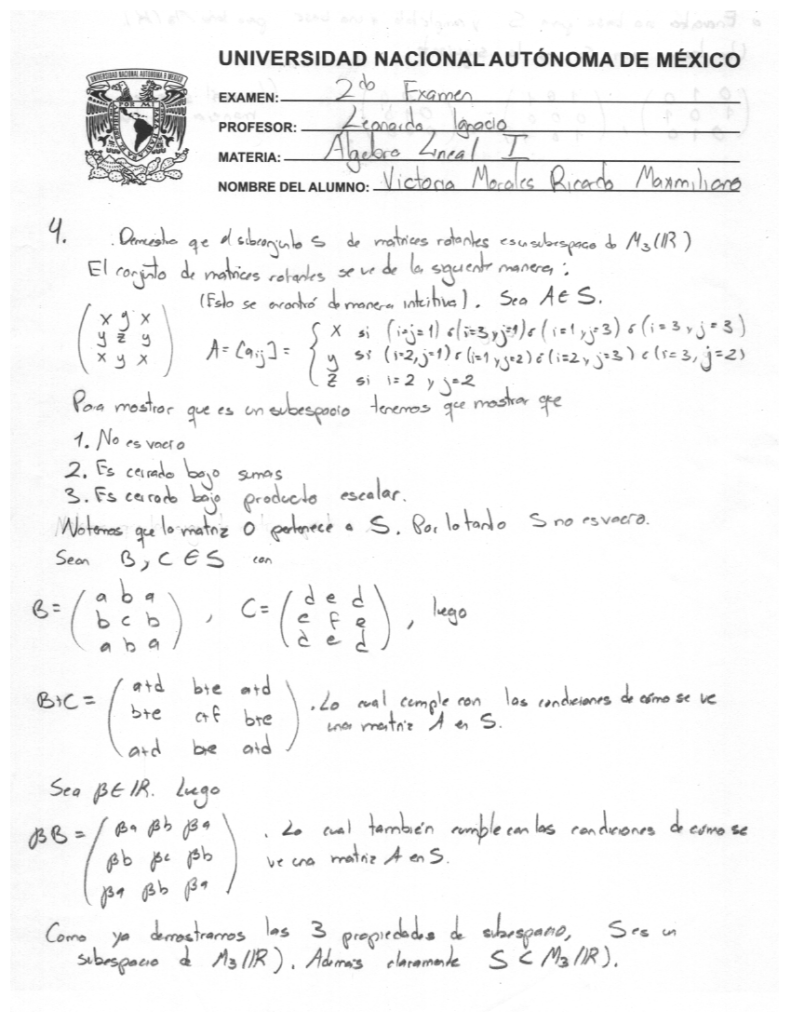 UNIVERSIDAD NACIONAL AUTÓNOMA DE MÉXICO
EXAMEN: 2do Examen
PROFESOR: Leonardo, Ignacio
MATERIA: Álgebra Lineal I
NOMBRE DEL ALUMNO: Victoria Morales Ricardo Maximiliano
4. Demuestra que el subconjunto S de matrices rotantes es un subespacio de M3(IR)
El conjunto de matrices rotantes se ve de la siguiente manera:
(Esto se encontró de manera intuitiva). Sea A∈S.
( x y x
y z y
x y x )
A = [aij] = { x si (i=j=1) ó (i=3 y j=1) ó (i=1 y j=3) ó (i=3 y j=3)
y si (i=2, j=1) ó (i=1 y j=2) ó (i=2 y j=3) ó (i=3, j=2)
z si i=2 y j=2
Para mostrar que es un subespacio tenemos que mostrar que
1. No es vacío
2. Es cerrado bajo sumas
3. Es cerrado bajo producto escalar.
Notemos que la matriz 0 pertenece a S. Por lo tanto S no es vacío.
Sean B, C ∈ S con
B = ( a b a
b c b
a b a ) , C = ( d e d
e f e
d e d ) , luego
B+C = ( a+d b+e a+d
b+e c+f b+e
a+d b+e a+d ) . Lo cual cumple con las condiciones de cómo se ve
una matriz A en S.
Sea β∈IR. Luego
βB = ( βa βb βa
βb βc βb
βa βb βa ) . Lo cual también cumple con las condiciones de cómo se
ve una matriz A en S.
Como ya demostramos las 3 propiedades de subespacio, S es un
subespacio de M3(IR). Además claramente S ⊂ M3(IR).